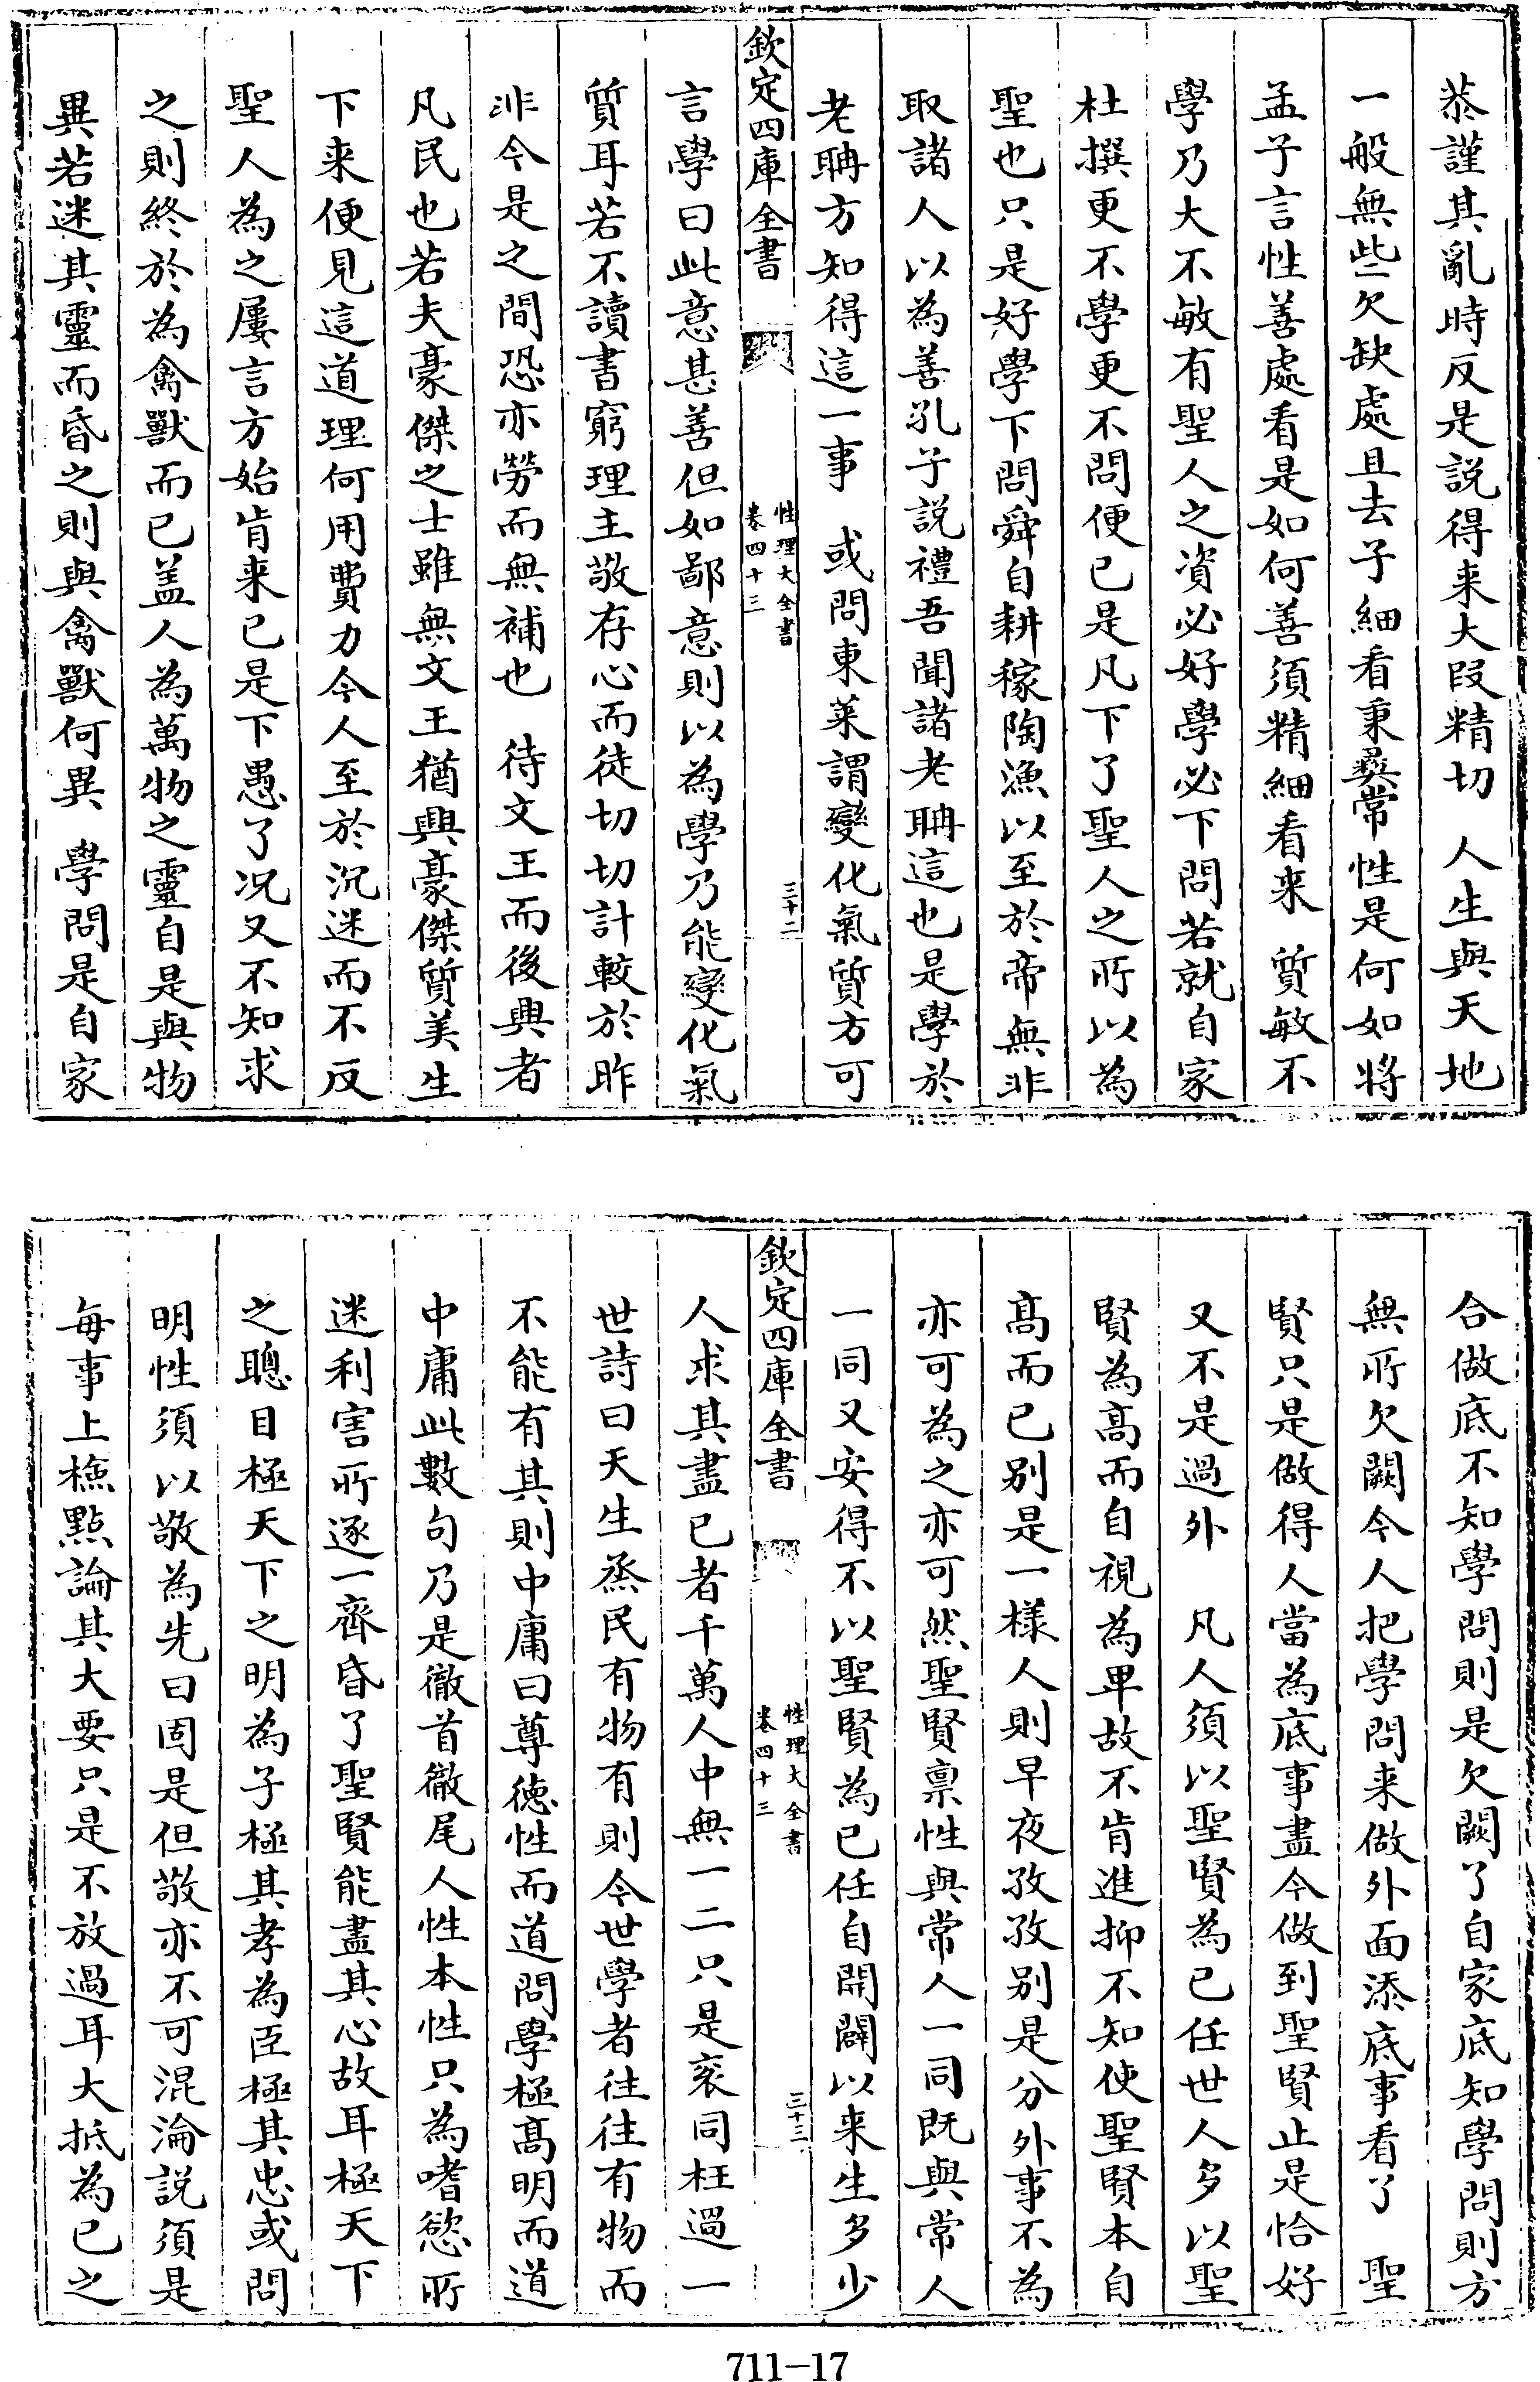 恭謹其亂時反是説得来大段精切　人生與天地
一般無些欠缺處且去子細看秉彝常性是何如將
孟子言性善處看是如何善須精細看来　質敏不
學乃大不敏有聖人之資必好學必下問若就自家
杜撰更不學更不問便已是凡下了聖人之所以為
聖也只是好學下問舜自耕稼陶漁以至於帝無非
取諸人以為善孔子説禮吾聞諸老聃這也是學於
老聃方知得這一事　或問東萊謂變化氣質方可
欽定四庫全書
性理大全書
卷四十三
三十二
言學曰此意甚善但如鄙意則以為學乃能變化氣
質耳若不讀書窮理主敬存心而徒切切計較於昨
非今是之間恐亦勞而無補也　待文王而後興者
凡民也若夫豪傑之士雖無文王猶興豪傑質美生
下来便見這道理何用費力今人至於沉迷而不反
聖人為之屢言方始肯来已是下愚了况又不知求
之則終於為禽獸而已盖人為萬物之靈自是與物
異若迷其靈而昏之則與禽獸何異　學問是自家
合做底不知學問則是欠闕了自家底知學問則方
無所欠闕今人把學問来做外面添底事看了　聖
賢只是做得人當為底事盡今做到聖賢止是恰好
又不是過外　凡人須以聖賢為己任世人多以聖
賢為高而自視為卑故不肯進抑不知使聖賢本自
高而已别是一樣人則早夜孜孜别是分外事不為
亦可為之亦可然聖賢禀性與常人一同既與常人
一同又安得不以聖賢為己任自開闢以来生多少
欽定四庫全書
性理大全書
卷四十三
三十三
人求其盡已者千萬人中無一二只是衮同枉過一
世詩曰天生烝民有物有則今世學者往往有物而
不能有其則中庸曰尊徳性而道問學極髙明而道
中庸此數句乃是徹首徹尾人性本性只為嗜慾所
迷利害所逐一齊昏了聖賢能盡其心故耳極天下
之聰目極天下之明為子極其孝為臣極其忠或問
明性須以敬為先曰固是但敬亦不可混淪説須是
每事上檢㸃論其大要只是不放過耳大抵為己之
711-17